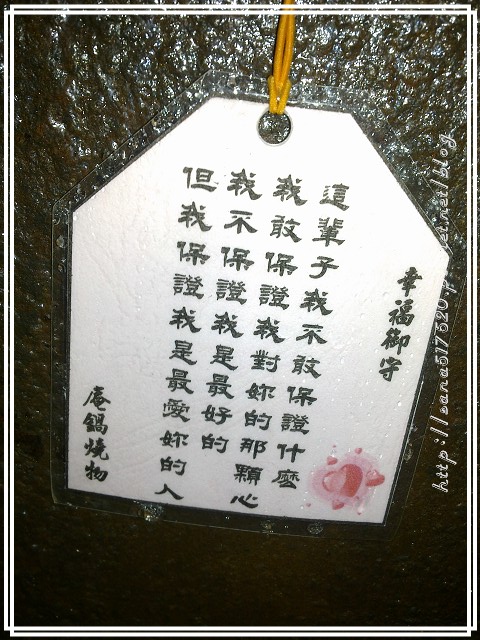 幸福御守
這輩子我不敢保證什麼
我敢保證我對妳的那顆心
我不保證我是最好的
但我保證我是最愛妳的人
庵鍋燒物